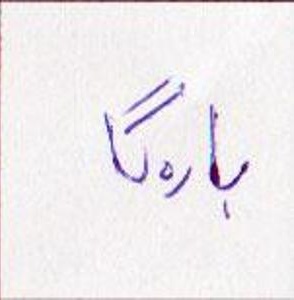 بارەگا